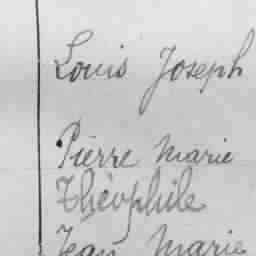 Louis Joseph
Pierre Marie
Théophile
Jean Marie